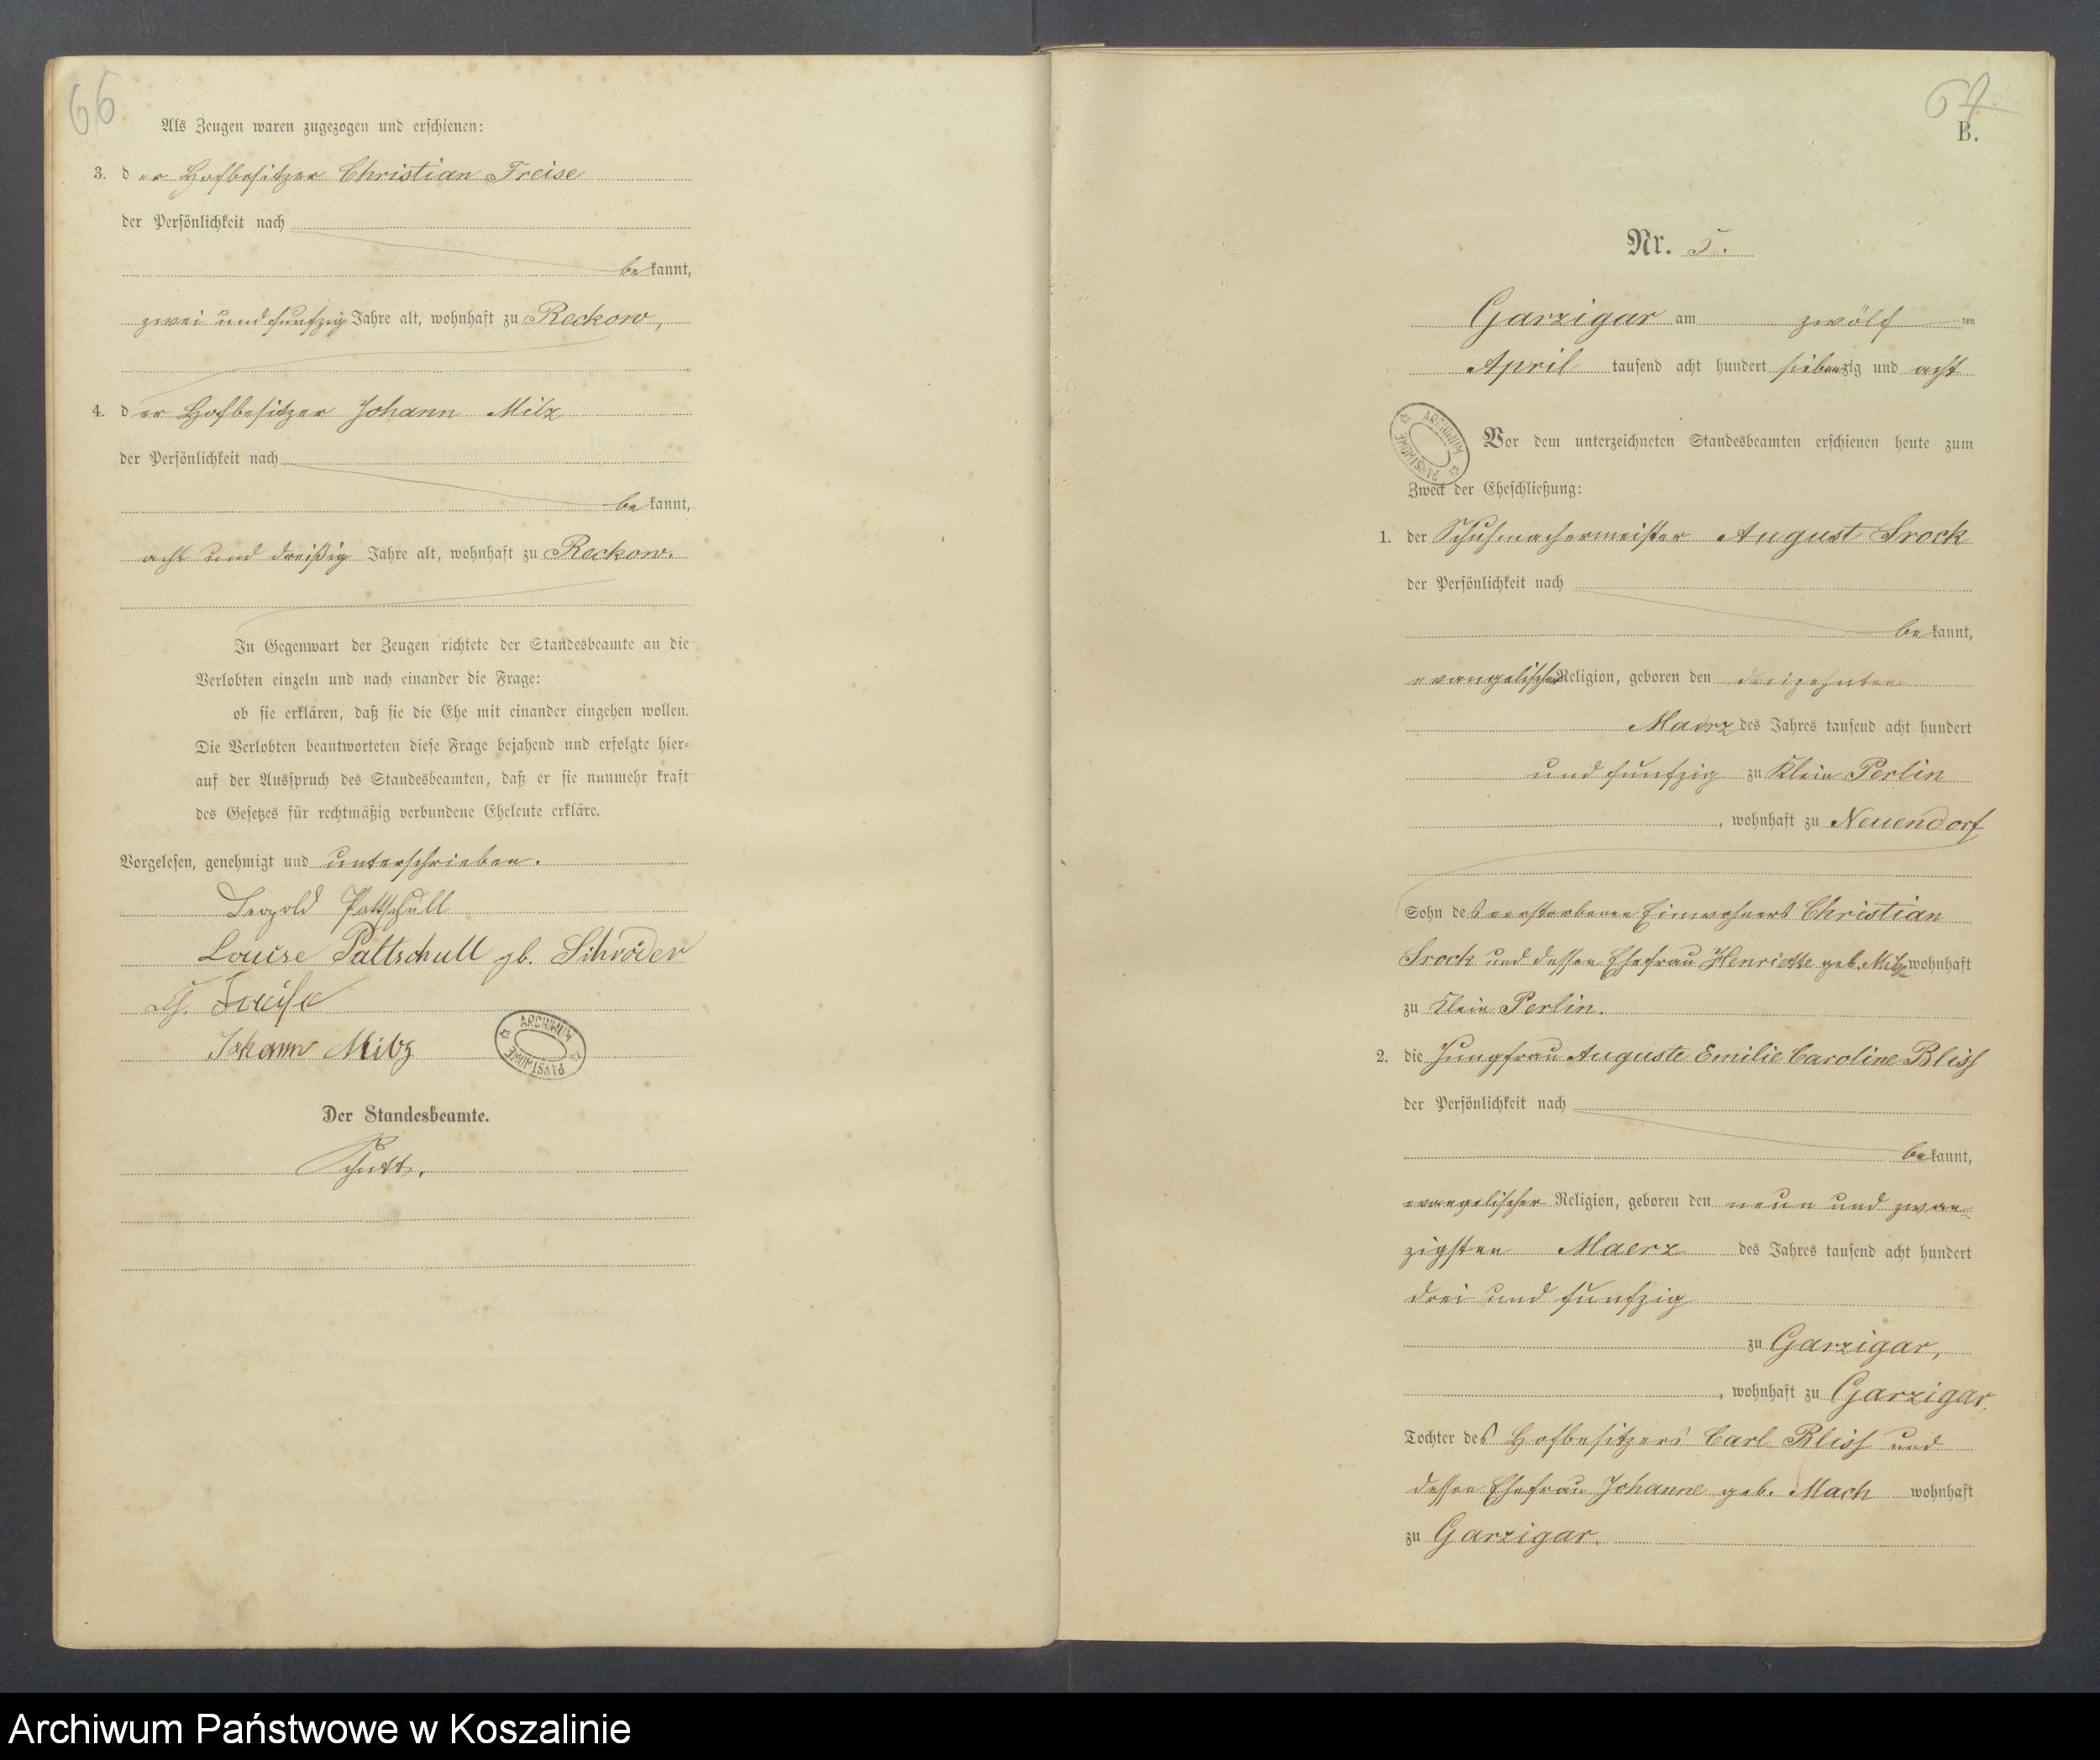 66
Als Zeugen waren zugezogen und erschienen:
3. der Hofbesitzer Christian Freise
der Persönlichkeit nach
bekannt,
zwei und funfzig Jahre alt, wohnhaft zu Reckow,
4. der Hofbesitzer Johann Milz
der Persönlichkeit nach
bekannt,
acht und dreißig Jahre alt, wohnhaft zu Reckow.
In Gegenwart der Zeugen richtete der Standesbeamte an die
Verlobten einzeln und nach einander die Frage:
ob sie erklären, daß sie die Ehe mit einander eingehen wollen.
Die Verlobten beantworteten diese Frage bejahend und erfolgte hier=
auf der Ausspruch des Standesbeamten, daß er sie nunmehr kraft
des Gesetzes für rechtmäßig verbundene Eheleute erkläre.
Vorgelesen, genehmigt und unterschrieben.
Leopold Pattschull
Louise Pattschull gb. Schröder
Freise
Johann Milz
ARCHIWUM PAŃSTWOWE
Der Standesbeamte.
67
B.
Nr. 5.
Garzigar am zwölften
April tausend acht hundert siebenzig und acht
ARCHIWUM PAŃSTWOWE
Vor dem unterzeichneten Standesbeamten erschienen heute zum
Zweck der Eheschließung:
1. der Schuhmachermeister August Srock
der Persönlichkeit nach
bekannt,
evangelischer Religion, geboren den dreizehnten
Maerz des Jahres tausend acht hundert
und funfzig zu Klein Perlin
, wohnhaft zu Neuendorf
Sohn des verstorbenen Einwohners Christian
Srock und dessen Ehefrau Henriette geb. Milz wohnhaft
zu Klein Perlin.
2. die Jungfrau Auguste Emilie Caroline Bliss
der Persönlichkeit nach
bekannt,
evangelischer Religion, geboren den neun und zwan=
zigsten Maerz des Jahres tausend acht hundert
drei und funfzig
zu Garzigar,
, wohnhaft zu Garzigar,
Tochter des Hofbesitzers Carl Bliss und
dessen Ehefrau Johanne geb. Mach wohnhaft
zu Garzigar.
Archiwum Państwowe w Koszalinie